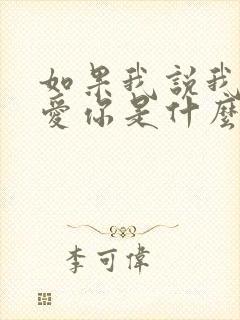 如果我説我
愛你是什麼
李可偉